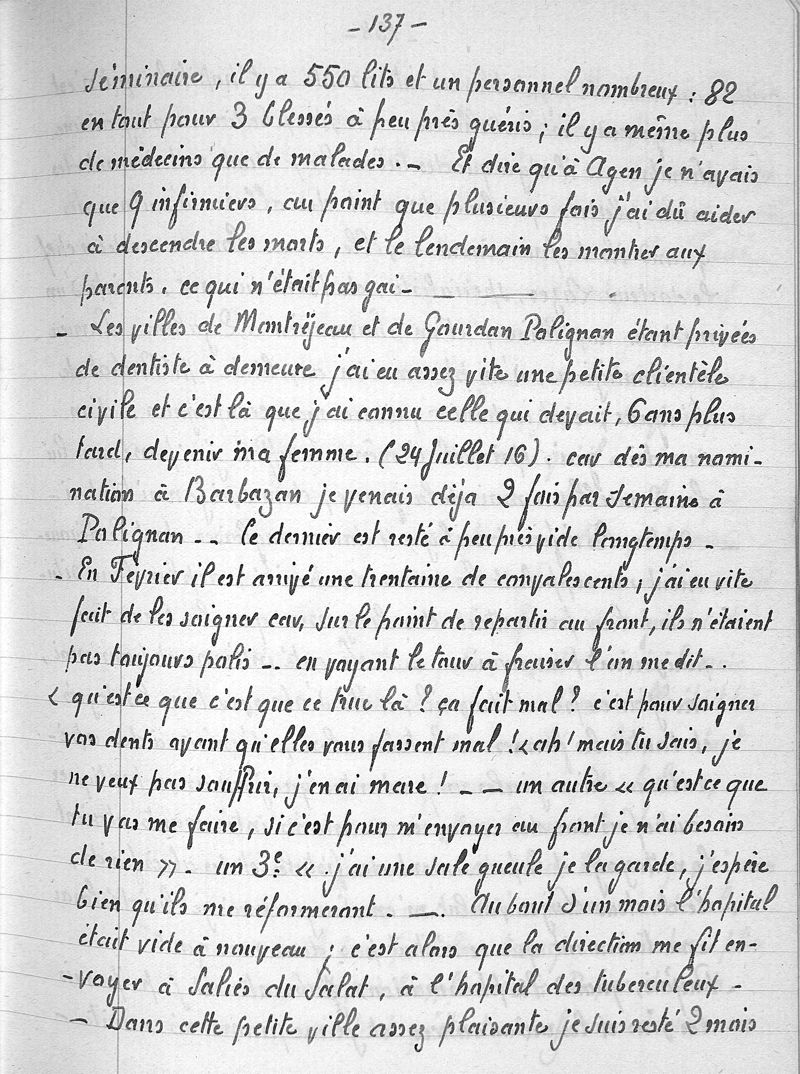 - 137 -
séminaire, il y a 550 lits et un personnel nombreux : 82
en tout pour 3 blessés à peu près guéris ; il y a même plus
de médecins que de malades. - Et dire qu'à Agen je n'avais
que 9 infirmiers, au point que plusieurs fois j'ai dû aider
à descendre les morts, et le lendemain les montrer aux
parents. ce qui n'était pas gai - - —
- Les villes de Montréjeau et de Gourdan Polignan étant privées
de dentiste à demeure j'ai eu assez vite une petite clientèle
civile et c'est là que j'ai connu celle qui devait, 6 ans plus
tard, devenir ma femme. (24 Juillet 16). car dès ma nomi-
nation à Barbazan je venais déja 2 fois par semaine à
Polignan - - ce dernier est resté à peu près vide longtemps -
- En Février il est arrivé une trentaine de convalescents, j'ai eu vite
fait de les soigner car, sur le point de repartir au front, ils n'étaient
pas toujours polis - - en voyant le tour à fraiser l'un me dit - .
« qu'est ce que c'est que ce truc là ? ça fait mal ? c'est pour soigner
vos dents avant qu'elles vous fassent mal ! « ah ! mais tu sais, je
ne veux pas souffrir, j'en ai mare ! - — un autre « qu'est ce que
tu vas me faire, si c'est pour m'envoyer au front je n'ai besoin
de rien » - un 3e « j'ai une sale gueule je la garde, j'espère
bien qu'ils me réformeront . — . Au bout d'un mois l'hopital
était vide à nouveau ; c'est alors que la direction me fit en-
-voyer à Saliés du Salat, à l'hopital des tuberculeux -
- Dans cette petite ville assez plaisante je suis resté 2 mois